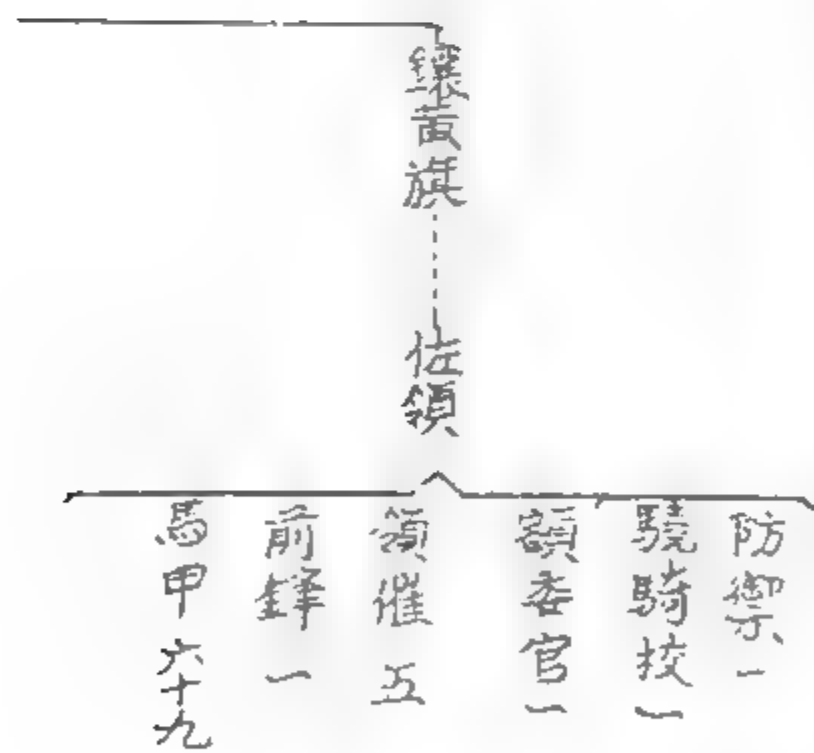 鑲黃旗
佐領
防禦一
驍騎校一
額委官一
領催五
前鋒一
馬甲六十九